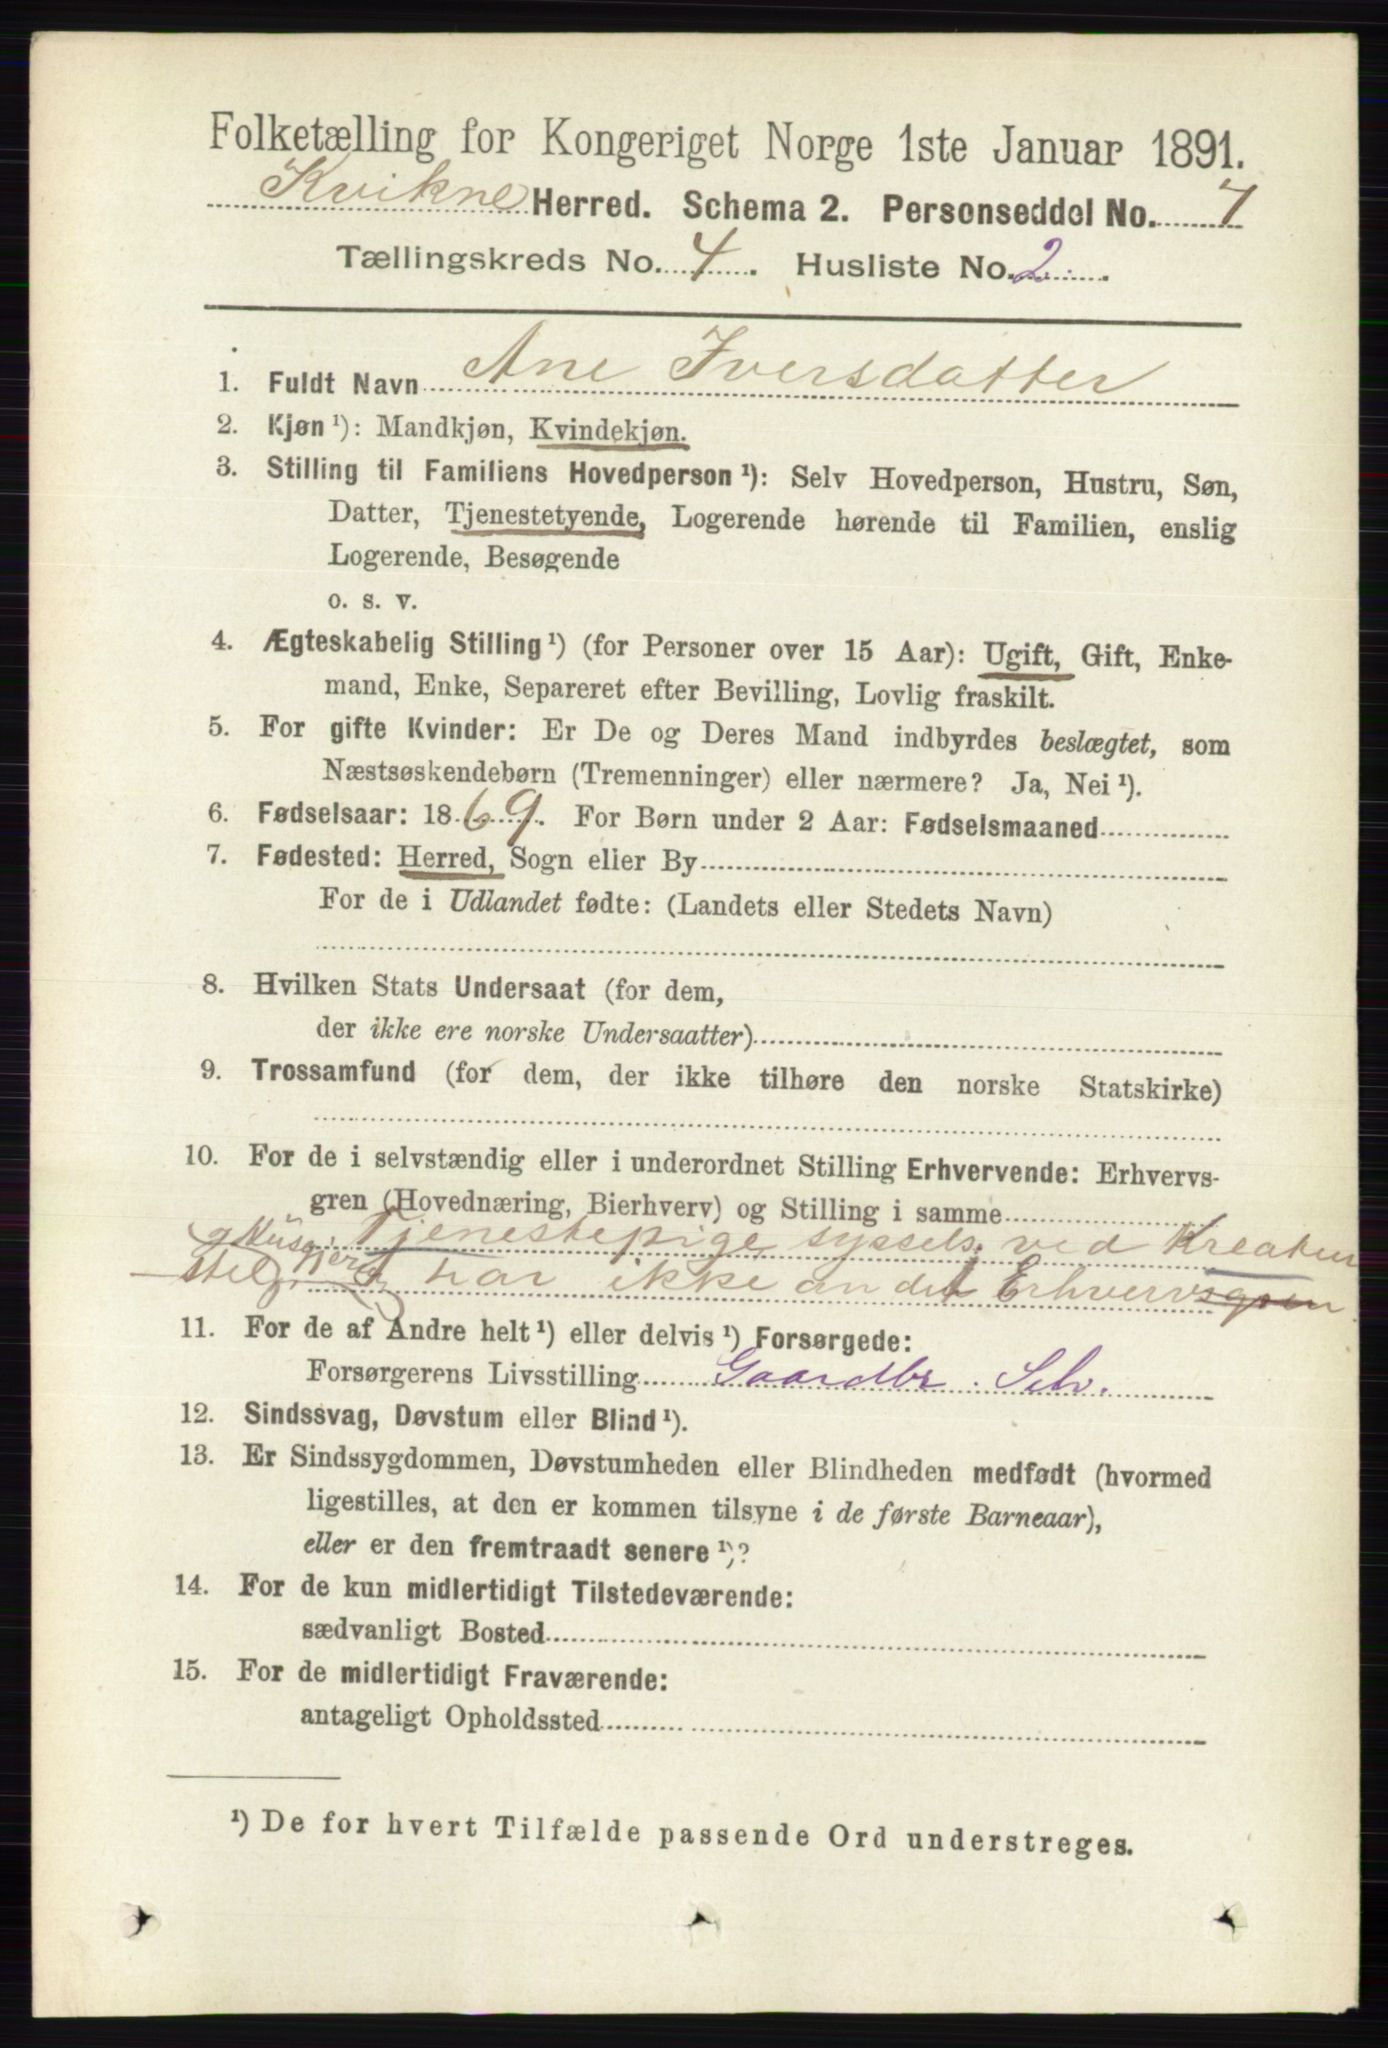 Folketælling for Kongeriget Norge 1ste Januar 1891.
Kvikne Herred. Schema 2. Personseddel No. 7
Tællingskreds No. 4. Husliste No. 2.
1. Fuldt Navn Ane Iversdatter
2. Kjøn ¹): Mandkjøn, Kvindekjøn.
3. Stilling til Familiens Hovedperson ¹): Selv Hovedperson, Hustru, Søn,
Datter, Tjenestetyende, Logerende hørende til Familien, enslig
Logerende, Besøgende
o. s. v.
4. Ægteskabelig Stilling ¹) (for Personer over 15 Aar): Ugift, Gift, Enke-
mand, Enke, Separeret efter Bevilling, Lovlig fraskilt.
5. For gifte Kvinder: Er De og Deres Mand indbyrdes beslægtet, som
Næstsøskendebørn (Tremenninger) eller nærmere? Ja, Nei ¹).
6. Fødselsaar: 1869. For Børn under 2 Aar: Fødselsmaaned
7. Fødested: Herred, Sogn eller By
For de i Udlandet fødte: (Landets eller Stedets Navn)
8. Hvilken Stats Undersaat (for dem,
der ikke ere norske Undersaatter)
9. Trossamfund (for dem, der ikke tilhøre den norske Statskirke)
10. For de i selvstændig eller i underordnet Stilling Erhvervende: Erhvervs-
gren (Hovednæring, Bierhverv) og Stilling i samme
Tjenestepige syssels. ved Kreatur
stel, har ikke andet Erhvervsgren
11. For de af Andre helt ¹) eller delvis ¹) Forsørgede:
Forsørgerens Livsstilling Gaardbr. Selv.
12. Sindssvag, Døvstum eller Blind ¹).
13. Er Sindssygdommen, Døvstumheden eller Blindheden medfødt (hvormed
ligestilles, at den er kommen tilsyne i de første Barneaar),
eller er den fremtraadt senere ¹)?
14. For de kun midlertidigt Tilstedeværende:
sædvanligt Bosted
15. For de midlertidigt Fraværende:
antageligt Opholdssted
¹) De for hvert Tilfælde passende Ord understreges.